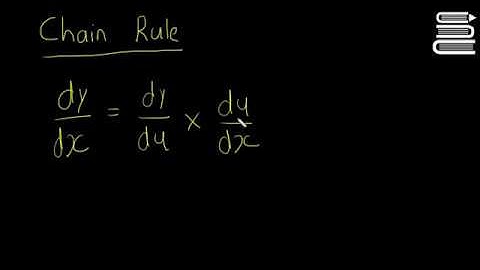 Chain Rule
dy/dx = dy/du × du/dx